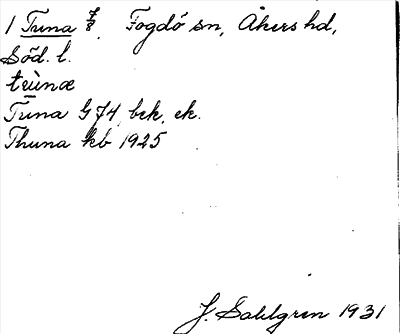 1 Tuna 7/8. Fogdö sn, Åkers hd,
Söd. l.
tùnæ
Tuna G74, bck, ek.
Thuna kb 1925
J. Sahlgren 1931